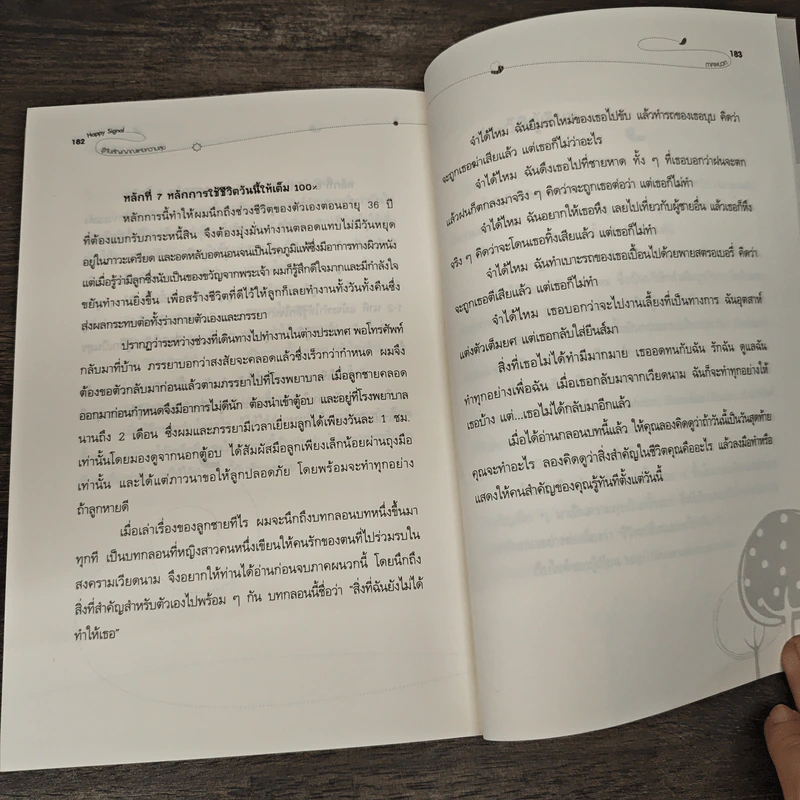 182 Happy Signal
หลักที่ 7 หลักการใช้ชีวิตวันนี้ให้เต็ม 100%
หลักการนี้ทำให้ผมนึกถึงช่วงชีวิตของตัวเองตอนอายุ 36 ปี
ที่ต้องแบกรับภาระหนี้สิน จึงต้องมุ่งมั่นทำงานตลอดแทบไม่มีวันหยุด
อยู่ในภาวะเครียด และอดหลับอดนอนจนเป็นโรคภูมิแพ้ซึ่งมีอาการทางผิวหนัง
แต่เมื่อรู้ว่ามีลูกซึ่งนับเป็นของขวัญจากพระเจ้า ผมก็รู้สึกดีใจมากและมีกำลังใจ
ขยันทำงานยิ่งขึ้น เพื่อสร้างชีวิตที่ดีไว้ให้ลูกก็เลยทำงานทั้งวันทั้งคืนซึ่ง
ส่งผลกระทบต่อทั้งร่างกายตัวเองและภรรยา
ปรากฏว่าระหว่างช่วงที่เดินทางไปทำงานในต่างประเทศ พอโทรศัพท์
กลับมาที่บ้าน ภรรยาบอกว่าสงสัยจะคลอดแล้วซึ่งเร็วกว่ากำหนด ผมจึง
ต้องขอตัวกลับมาก่อนแล้วตามภรรยาไปที่โรงพยาบาล เมื่อลูกชายคลอด
ออกมาก่อนกำหนดจึงมีอาการไม่ดีนัก ต้องนำเข้าตู้อบ และอยู่ที่โรงพยาบาล
นานถึง 2 เดือน ซึ่งผมและภรรยามีเวลาเยี่ยมลูกได้เพียงวันละ 1 ชม.
เท่านั้นโดยมองดูจากนอกตู้อบ ได้สัมผัสมือลูกเพียงเล็กน้อยผ่านถุงมือ
เท่านั้น และได้แต่ภาวนาขอให้ลูกปลอดภัย โดยพร้อมจะทำทุกอย่าง
ถ้าลูกหายดี
เมื่อเล่าเรื่องของลูกชายทีไร ผมจะนึกถึงบทกลอนบทหนึ่งขึ้นมา
ทุกที เป็นบทกลอนที่หญิงสาวคนหนึ่งเขียนให้คนรักของตนที่ไปร่วมรบใน
สงครามเวียดนาม จึงอยากให้ท่านได้อ่านก่อนจบภาคผนวกนี้ โดยนึกถึง
สิ่งที่สำคัญสำหรับตัวเองไปพร้อม ๆ กัน บทกลอนนี้ชื่อว่า “สิ่งที่ฉันยังไม่ได้
ทำให้เธอ”
183
ภาคผนวก
จำได้ไหม ฉันยืมรถใหม่ของเธอไปขับ แล้วทำรถของเธอบุบ คิดว่า
จะถูกเธอฆ่าเสียแล้ว แต่เธอก็ไม่ว่าอะไร
จำได้ไหม ฉันดึงเธอไปที่ชายหาด ทั้ง ๆ ที่เธอบอกว่าฝนจะตก
แล้วฝนก็ตกลงมาจริง ๆ คิดว่าจะถูกเธอต่อว่า แต่เธอก็ไม่ทำ
จำได้ไหม ฉันอยากให้เธอหึง เลยไปเที่ยวกับผู้ชายอื่น แล้วเธอก็หึง
จริง ๆ คิดว่าจะโดนเธอทิ้งเสียแล้ว แต่เธอก็ไม่ทำ
จำได้ไหม ฉันทำเบาะรถของเธอเปื้อนไปด้วยพายสตรอเบอรี่ คิดว่า
จะถูกเธอตีเสียแล้ว แต่เธอก็ไม่ทำ
จำได้ไหม เธอบอกว่าจะไปงานเลี้ยงที่เป็นทางการ ฉันอุตส่าห์
แต่งตัวเต็มยศ แต่เธอกลับใส่ยีนส์มา
สิ่งที่เธอไม่ได้ทำมีมากมาย เธออดทนกับฉัน รักฉัน ดูแลฉัน
ทำทุกอย่างเพื่อฉัน เมื่อเธอกลับมาจากเวียดนาม ฉันก็จะทำทุกอย่างให้
เธอบ้าง แต่...เธอไม่ได้กลับมาอีกแล้ว
เมื่อได้อ่านกลอนบทนี้แล้ว ให้คุณลองคิดดูว่าถ้าวันนี้เป็นวันสุดท้าย
คุณจะทำอะไร ลองคิดดูว่าสิ่งสำคัญในชีวิตคุณคืออะไร แล้วลงมือทำหรือ
แสดงให้คนสำคัญของคุณรู้ทันทีตั้งแต่วันนี้